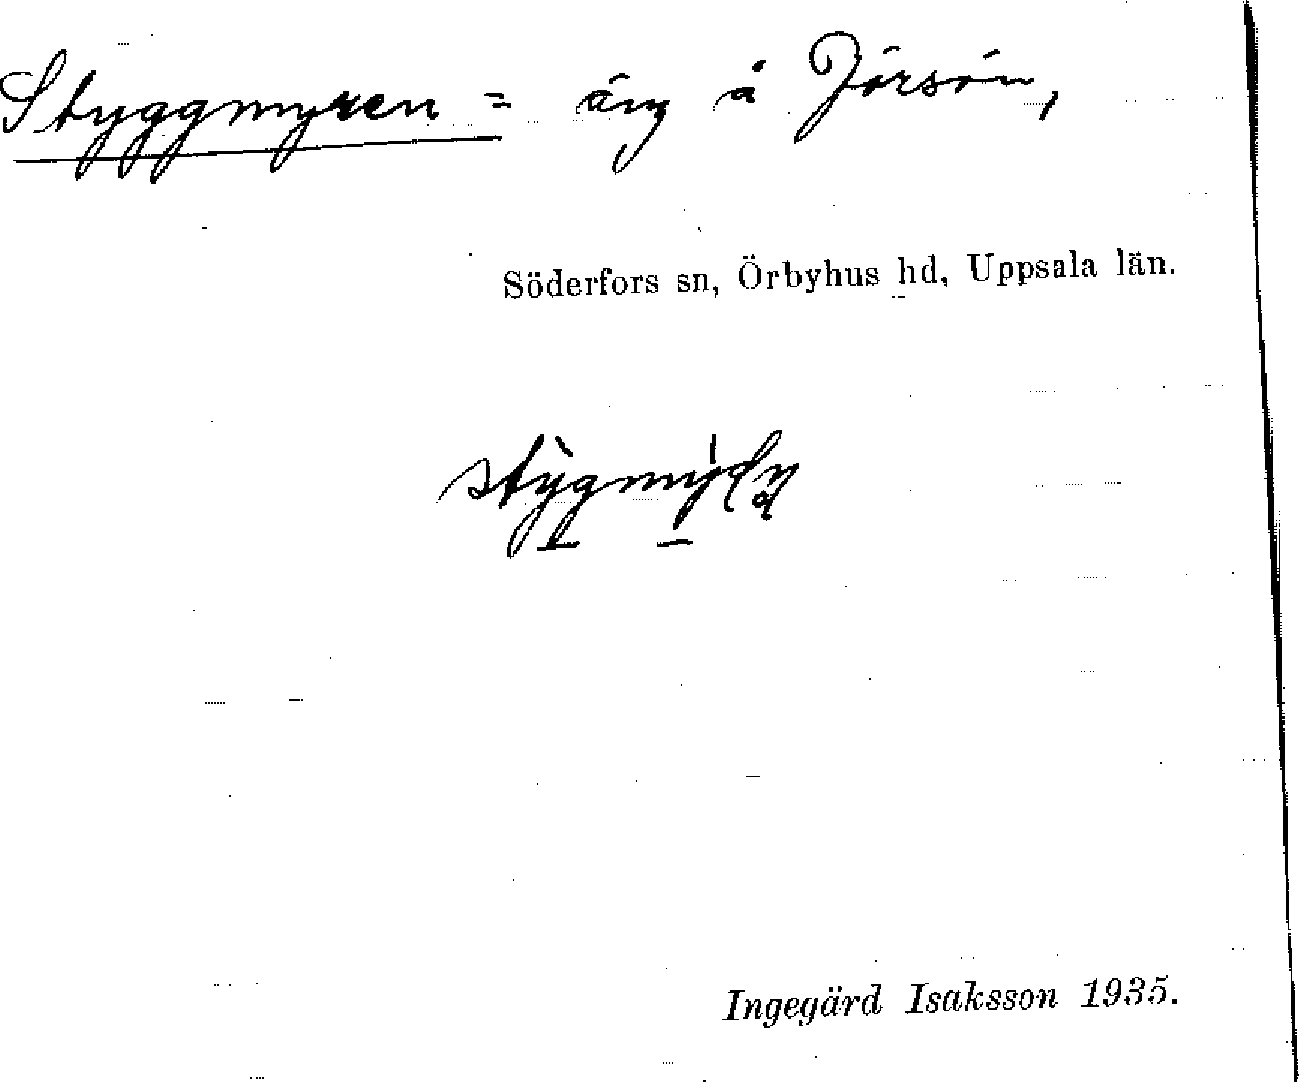 Styggmyren = äng å Jörsön,
Söderfors sn, Örbyhus hd, Uppsala län.
Ingegärd Isaksson 1935.